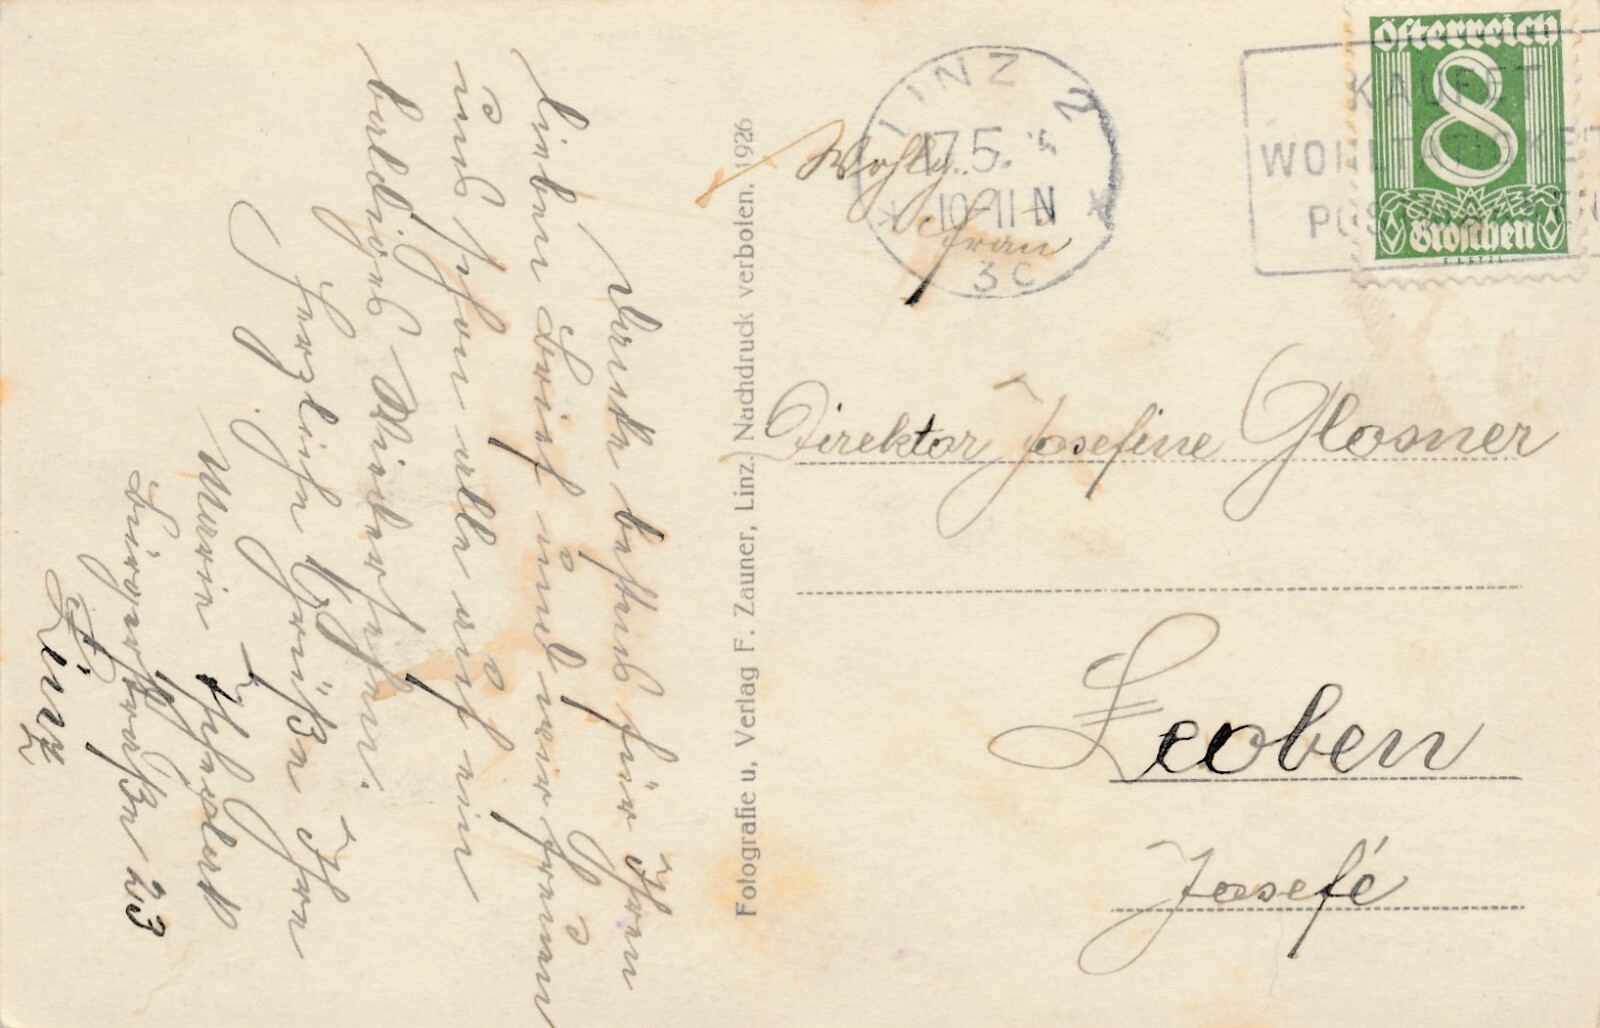 Danke bestens für Ihren
lieben Brief und wir freuen
uns schon alle auf ein
baldiges Wiedersehen.
Herzliche Grüße Ihre
Marie
Bürgerstraße 23
Linz
Fotografie u. Verlag F. Zauner, Linz. Nachdruck verboten. 1926
LINZ 2
17.5.
* 10-11 N *
3c
KAUFET
WOHLTÄTIGKEITS
POSTMARKEN
Österreich
8
Groschen
Wohlg.
Frau
Direktor Josefine Glosner
Leoben
Josefé